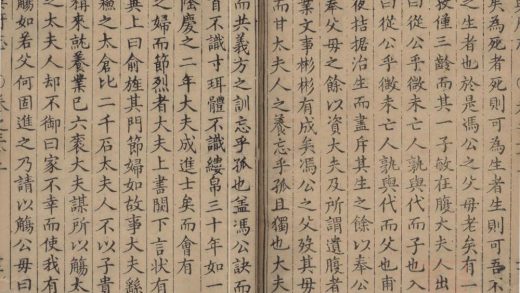 矣為死者死則可為生者生則可吾不
之生者也於是馮公之父母老矣有一
按僅三齡而其一子敏在腹太夫人出
曰從公乎微未亡人孰與代而子也入
曰從公乎微未亡人孰與代而父也甫
夜拮据治生而盡斥其生之餘以奉公
奉父母之餘以資大夫及所謂遺腹者
業文事彬彬有成矣馮公之父歿其母
而甘太夫人之養忘乎孤且獨也大夫
而共義方之訓忘乎孤也盖馮公訣而
首不識寸珥體不識縷帛三十年如一
隆慶之二年大夫成進士矣而會有
之婦而節烈者大夫上書闕下言狀有
其上曰俞旌其門節婦如故事大夫繇
極之太倉比二千石太夫人不以子貴
稍來就養業已六袠大夫謀所以觴太
之太夫人却不御曰家不幸而使我有
觴如若父何固進之乃請以觴公母曰